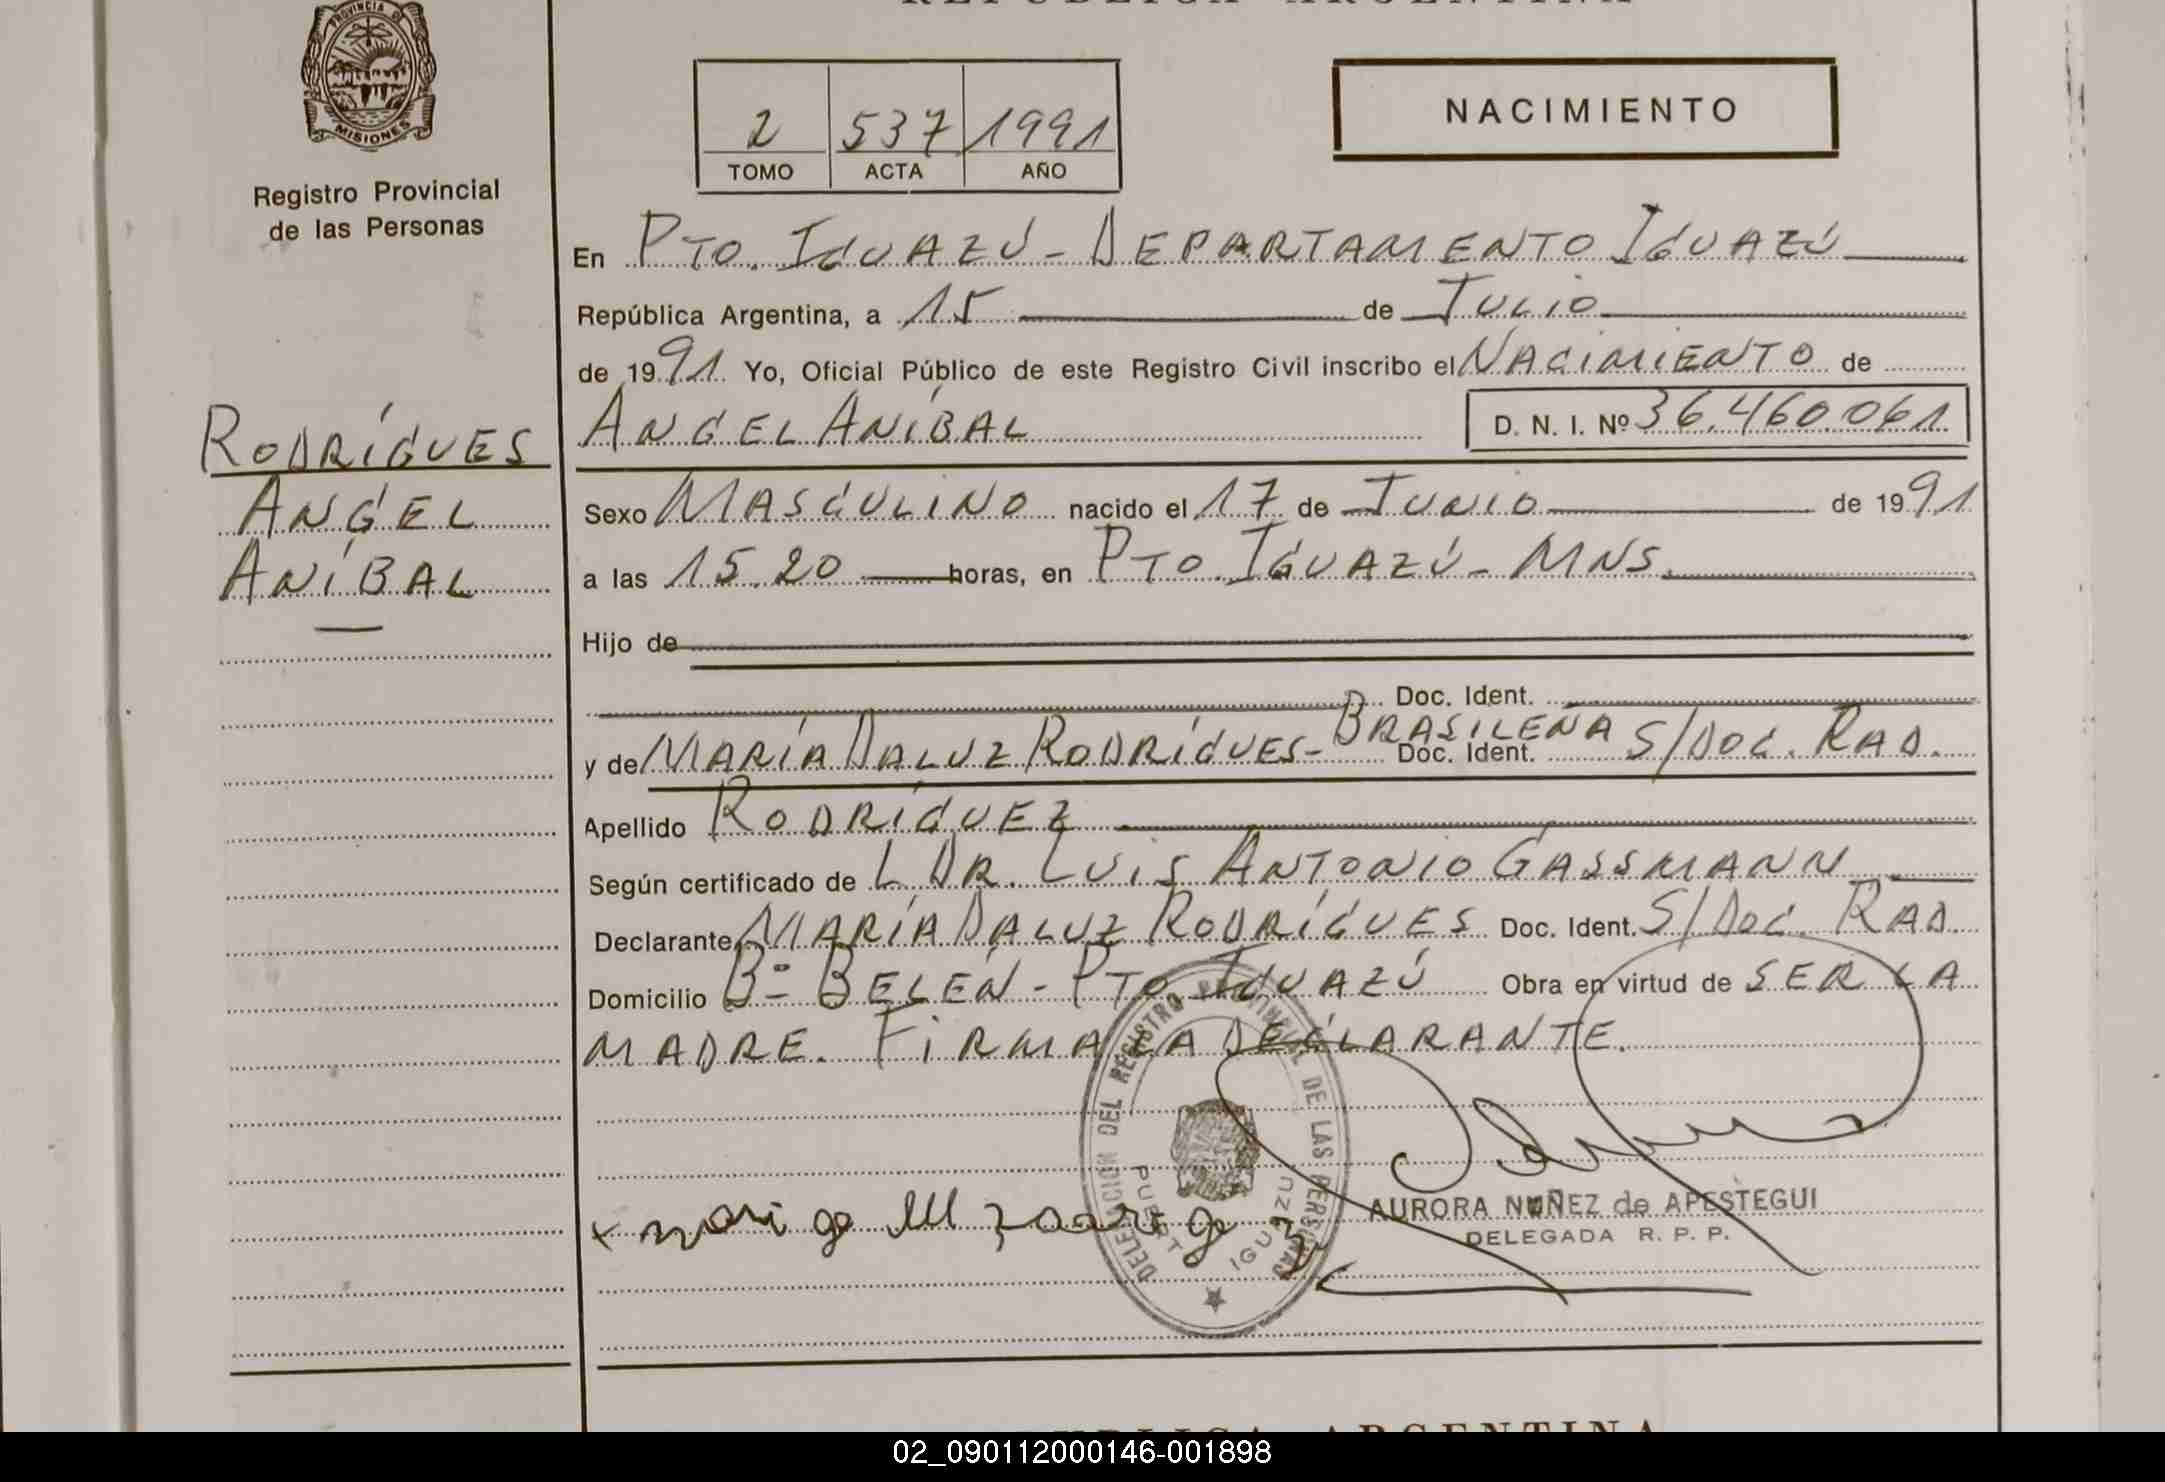 REPUBLICA ARGENTINA
PROVINCIA DE
MISIONES
Registro Provincial
de las Personas
2 537 1991
TOMO ACTA AÑO
NACIMIENTO
En PTO. IGUAZÚ - DEPARTAMENTO IGUAZÚ
República Argentina, a 15 de JULIO
de 1991. Yo, Oficial Público de este Registro Civil inscribo el NACIMIENTO de
ANGEL ANÍBAL D. N. I. Nº 36.460.061
RODRÍGUES
ANGEL
ANÍBAL
Sexo MASCULINO nacido el 17 de JUNIO de 1991
a las 15.20 horas, en PTO. IGUAZÚ - MNS.
Hijo de
Doc. Ident.
y de MARÍA DALUZ RODRÍGUES - BRASILEÑA Doc. Ident. S/DOC. RAD.
Apellido RODRÍGUEZ
Según certificado de L DR. LUIS ANTONIO GASSMANN
Declarante MARÍA DALUZ RODRÍGUES Doc. Ident. S/DOC. RAD.
Domicilio Bº BELÉN - PTO IGUAZÚ Obra en virtud de SER LA
MADRE. FIRMA LA DECLARANTE.
DELEGACION DEL REGISTRO PROVINCIAL DE LAS PERSONAS
PUERTO IGUAZU
AURORA NUÑEZ de APESTEGUI
DELEGADA R. P. P.
REPUBLICA ARGENTINA
02_090112000146-001898